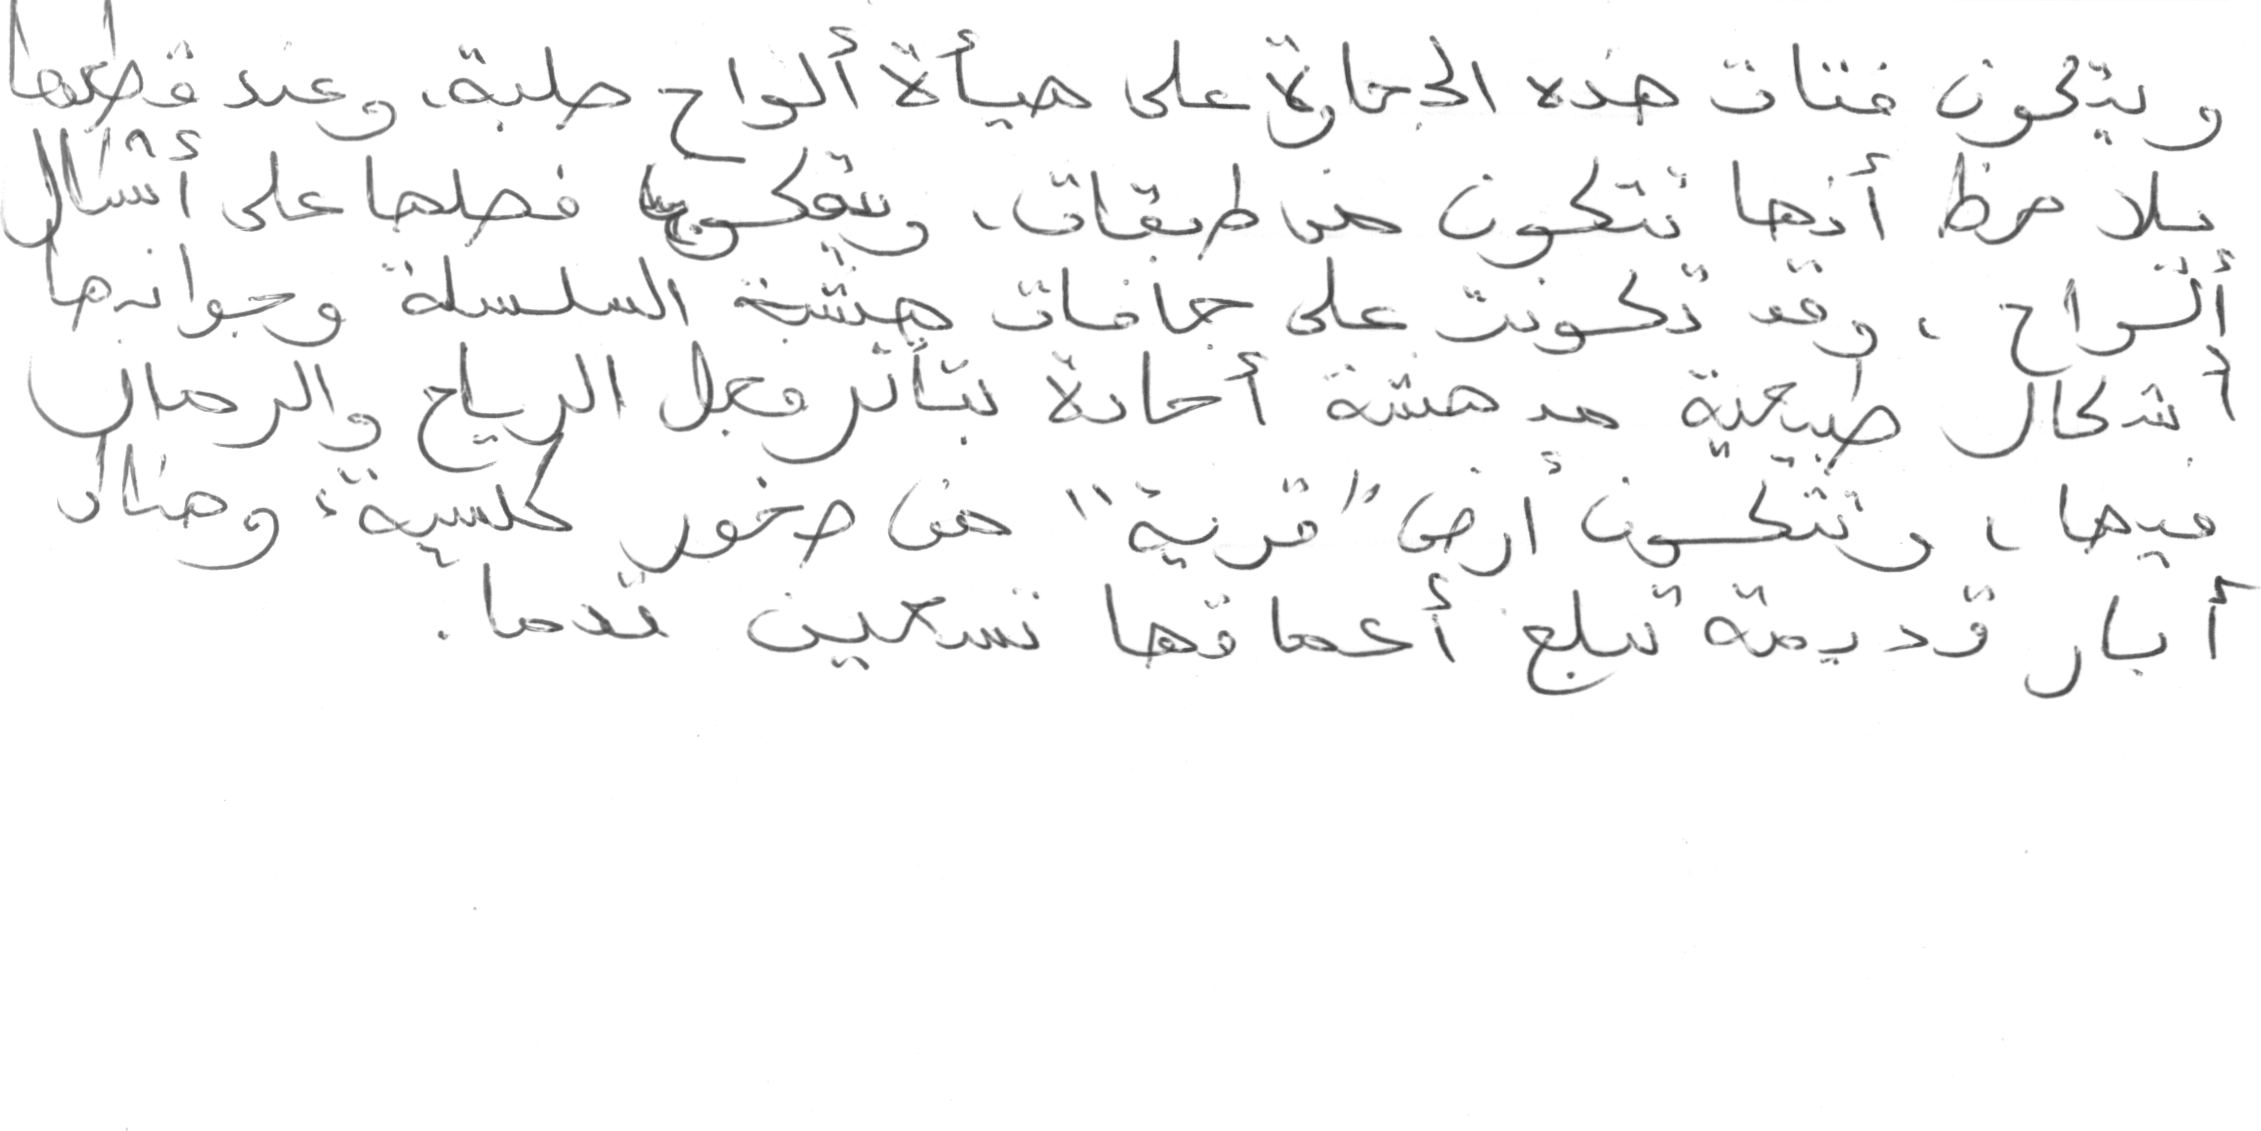 ويتكون فتات هذه الحجارة على هيأة ألواح صلبة، وعند قطعها
يلاحظ أنها تتكون من طبقات، ويتكون فصلها على أشكال
ألواح، وقد تكونت على حافات هشة السلسلة وجوانبها
أشكال طبيعية مدهشة أخادة بتأثر فعل الرياح والرمال
فيها، وتتكون أرض "قرية" من صخور كلسية، وهناك
أبار قديمة تبلغ أعماقها تسعين قدما.